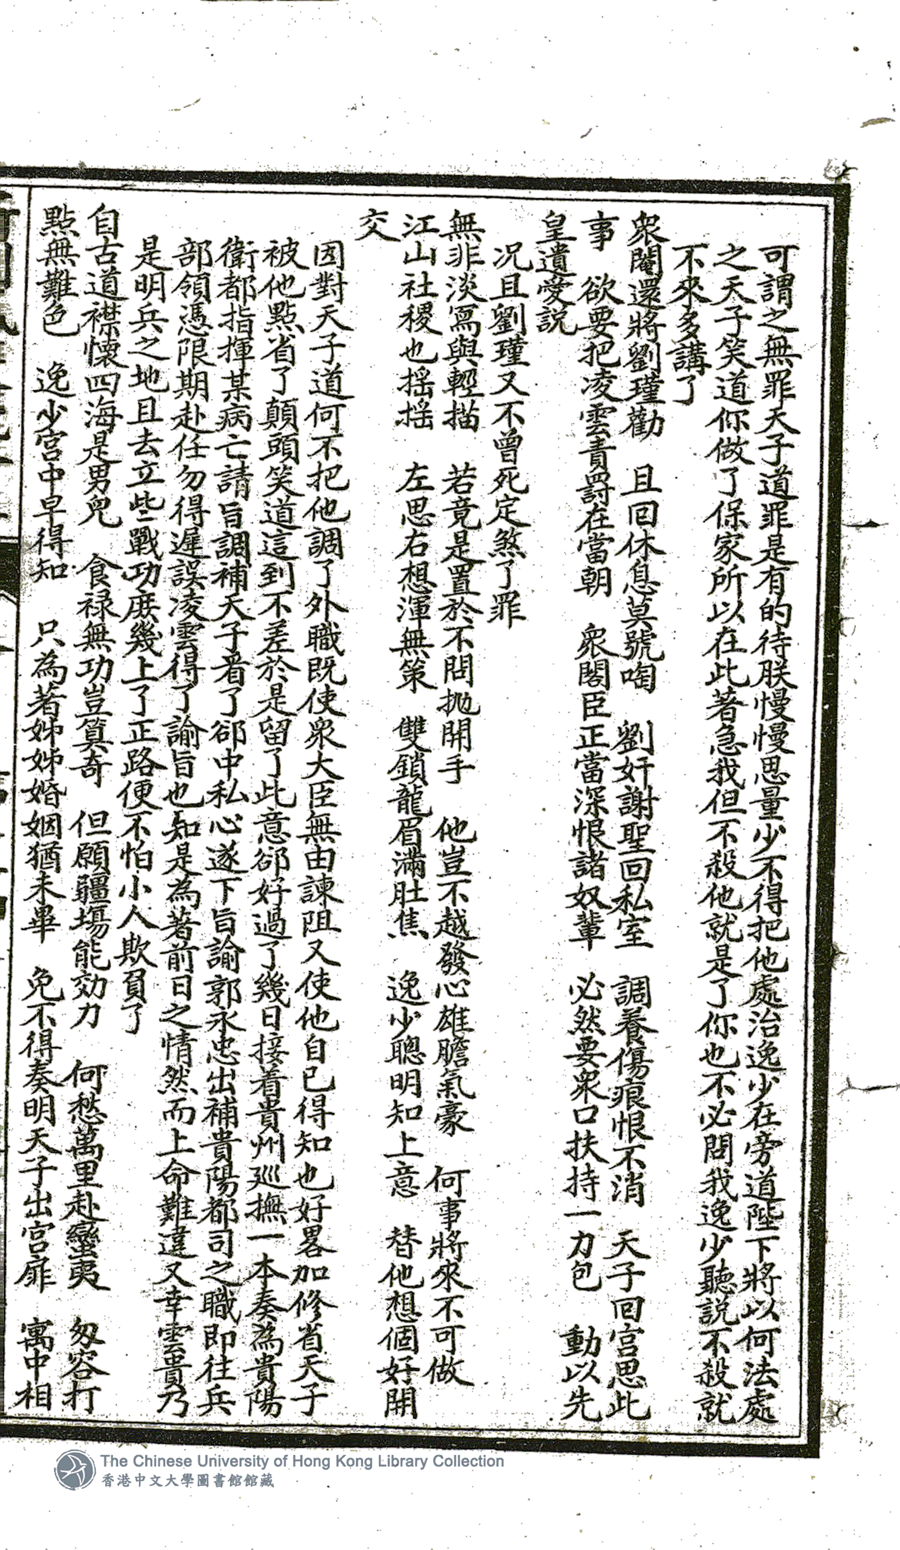 可謂之無罪天子道罪是有的待朕慢慢思量少不得把他處治逸少在旁道陛下將以何法處
之天子笑道你做了保家所以在此著急我但不殺他就是了你也不必問我逸少聽說不殺就
不來多講了
衆閹還將劉瑾勸　且回休息莫號啕　劉奸謝聖回私室　調養傷痕恨不消　天子回宮思此
事　欲要把凌雲責爵在當朝　衆閣臣正當深恨諸奴輩　必然要衆口扶持一力包　動以先
皇遺愛説
況且劉瑾又不曾死定煞了罪
無非淡寫與輕描　若竟是置於不問拋開手　他豈不越發心雄膽氣豪　何事將來不可做
江山社稷也搖搖　左思右想渾無策　雙鎖龍眉滿肚焦　逸少聰明知上意　替他想個好開
交
因對天子道何不把他調了外職既使衆大臣無由諫阻又使他自已得知也好畧加修省天子
被他點省了顛頭笑道這到不差於是留了此意郤好過了幾日接着貴州廵撫一本奏為貴陽
衛都指揮某病亡請旨調補天子看了郤中私心遂下旨諭郭永忠出補貴陽都司之職即往兵
部領憑限期赴任勿得遲誤凌雲得了諭旨也知是為著前日之情然而上命難違又幸雲貴乃
是明兵之地且去立些戰功庶幾上了正路便不怕小人欺負了
自古道襟懷四海是男兒　食禄無功豈算奇　但願疆場能効力　何愁萬里赴蠻夷　匆容打
點無難色　逸少宮中早得知　只為著姊姊婚姻猶未畢　免不得奏明天子出宮扉　寓中相
The Chinese University of Hong Kong Library Collection
香港中文大學圖書館館藏